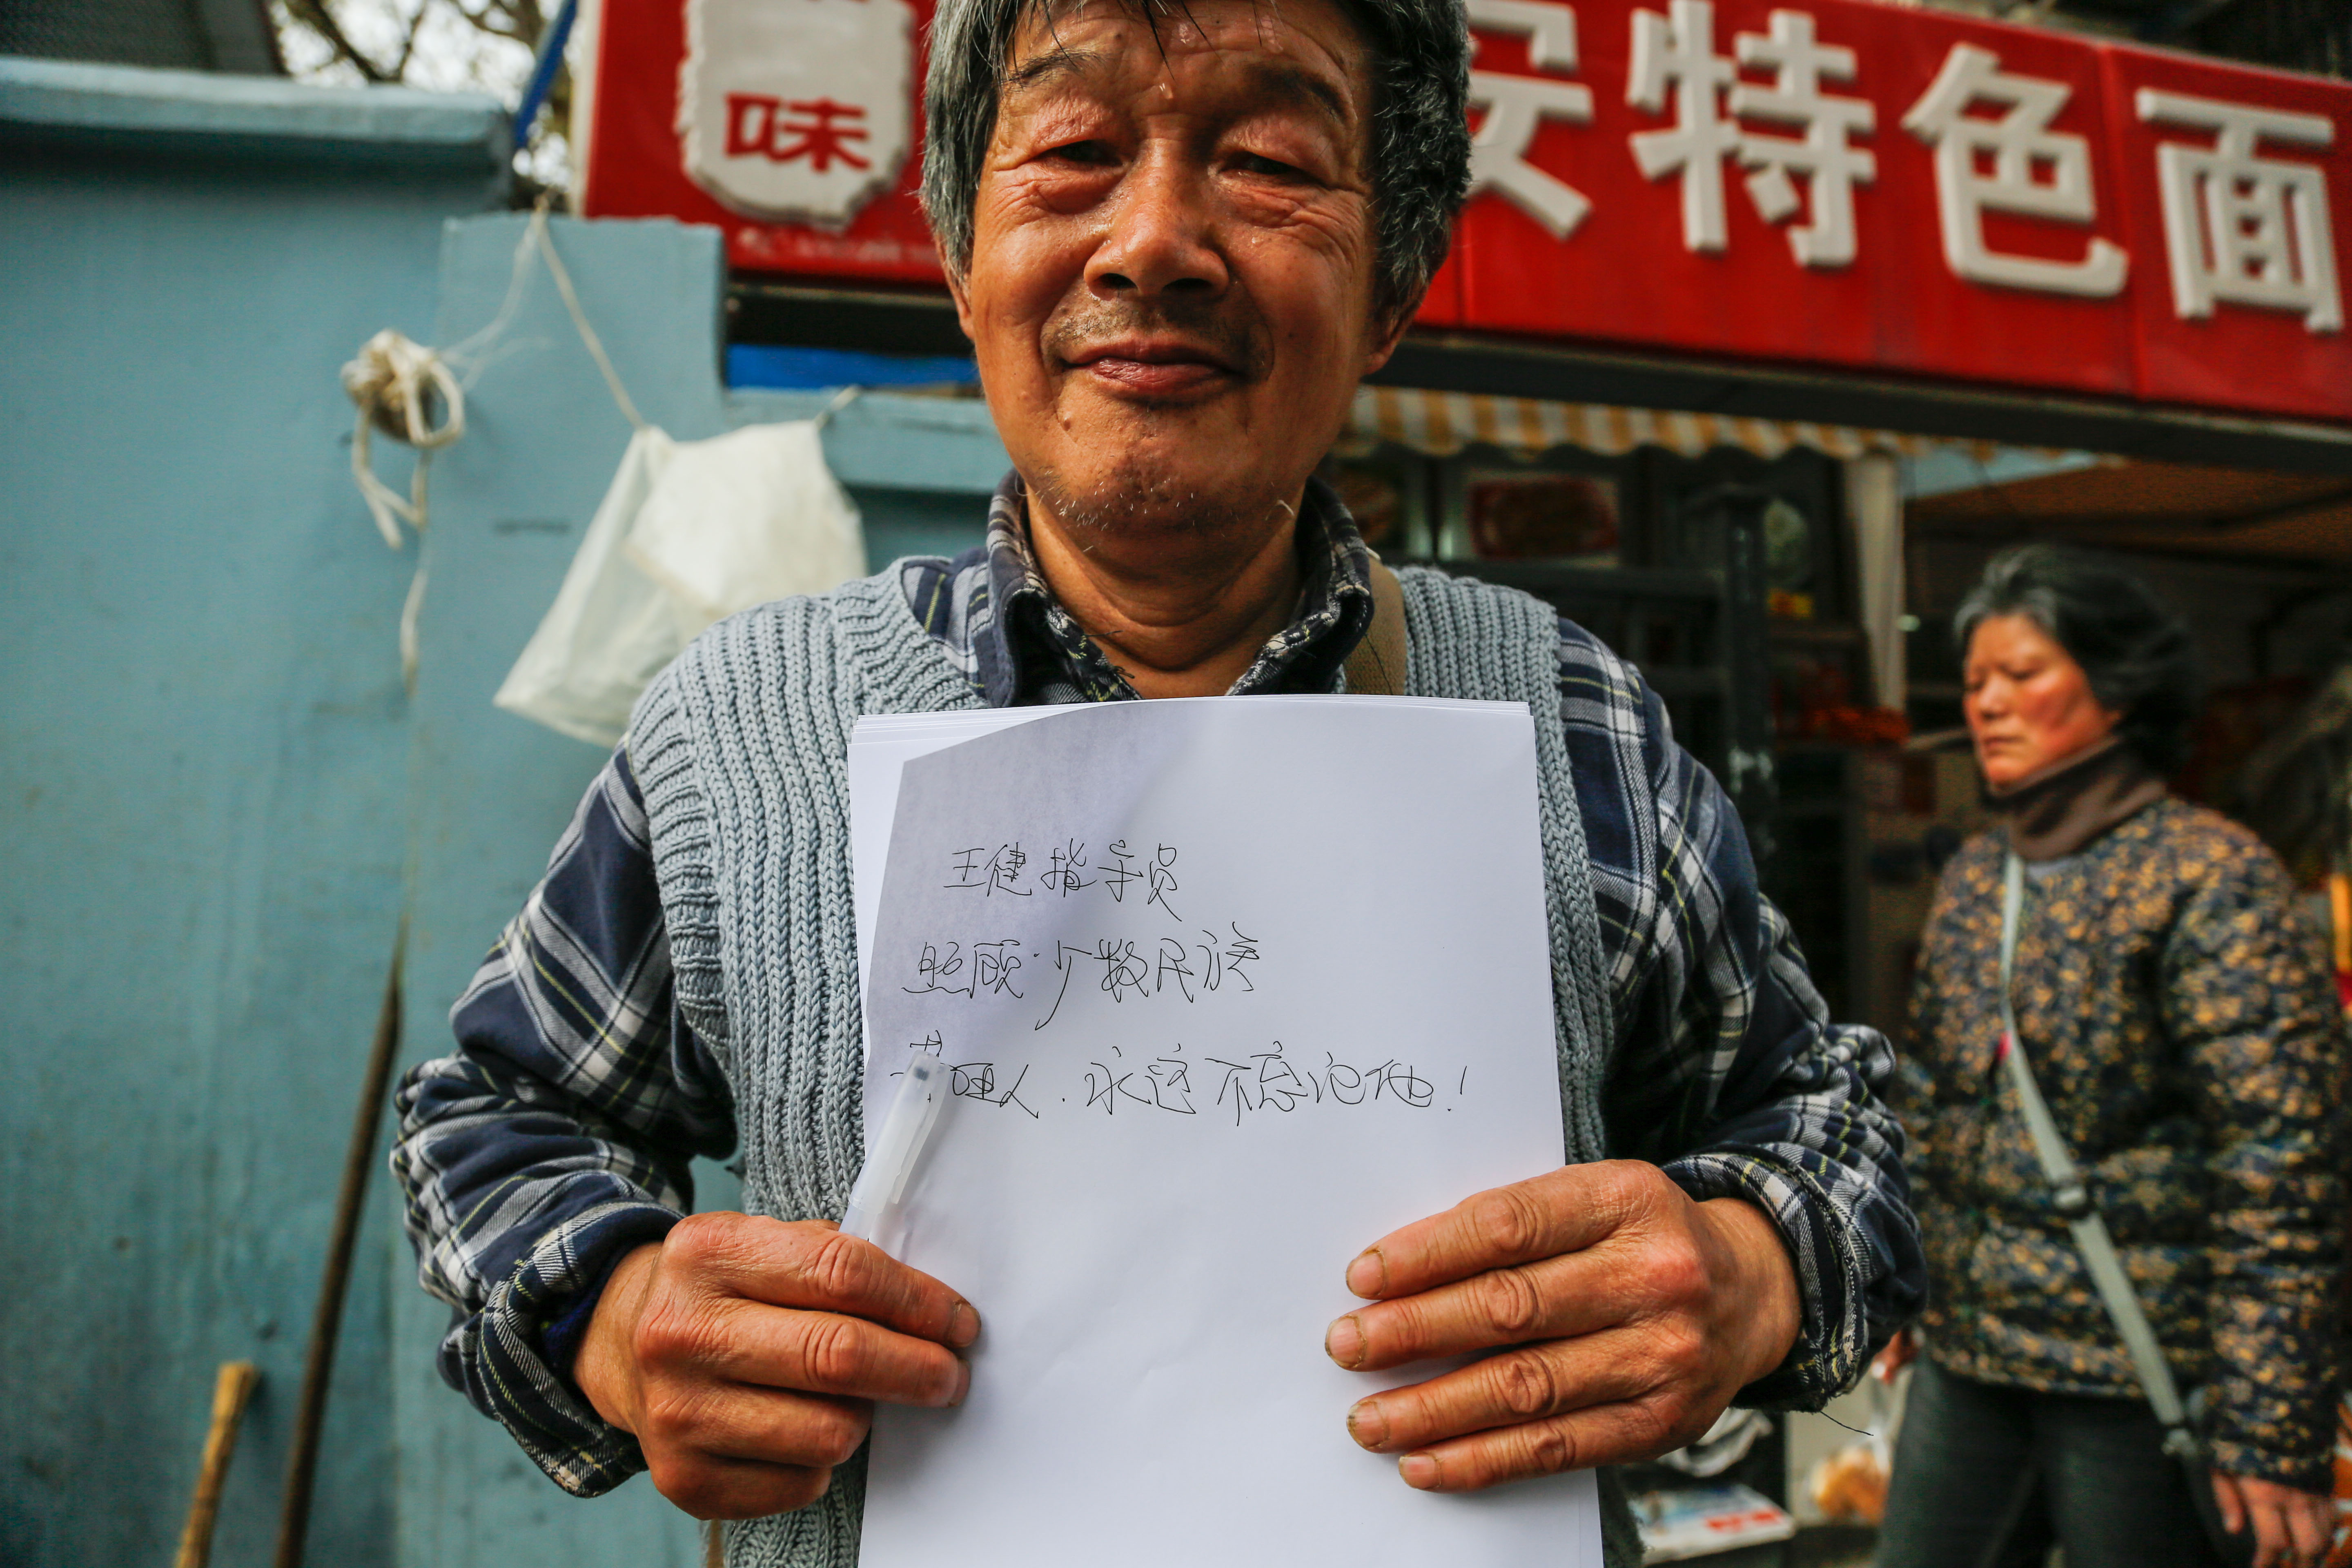 味
安特色面
王健指导员
照顾少数民族
人.永远不忘记他!